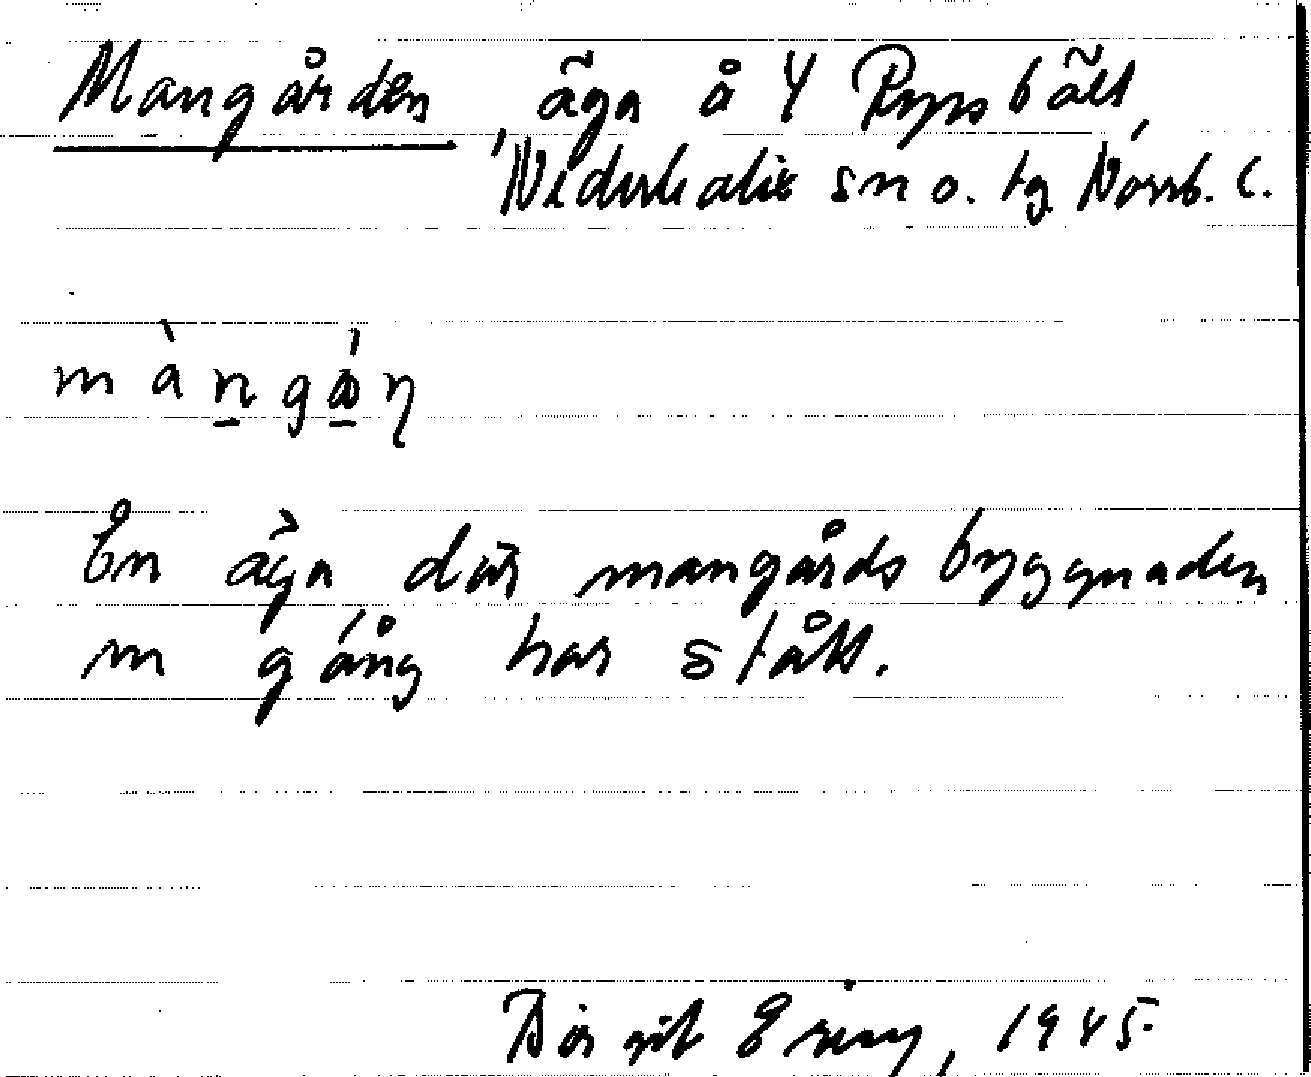 Mangården, äga å 4 Rypsbält,
Nederkalix sn o. tg Norrb. l.
màngån
En äga där mangårdsbyggnaden
en gång har stått.
Birgit Ering, 1945